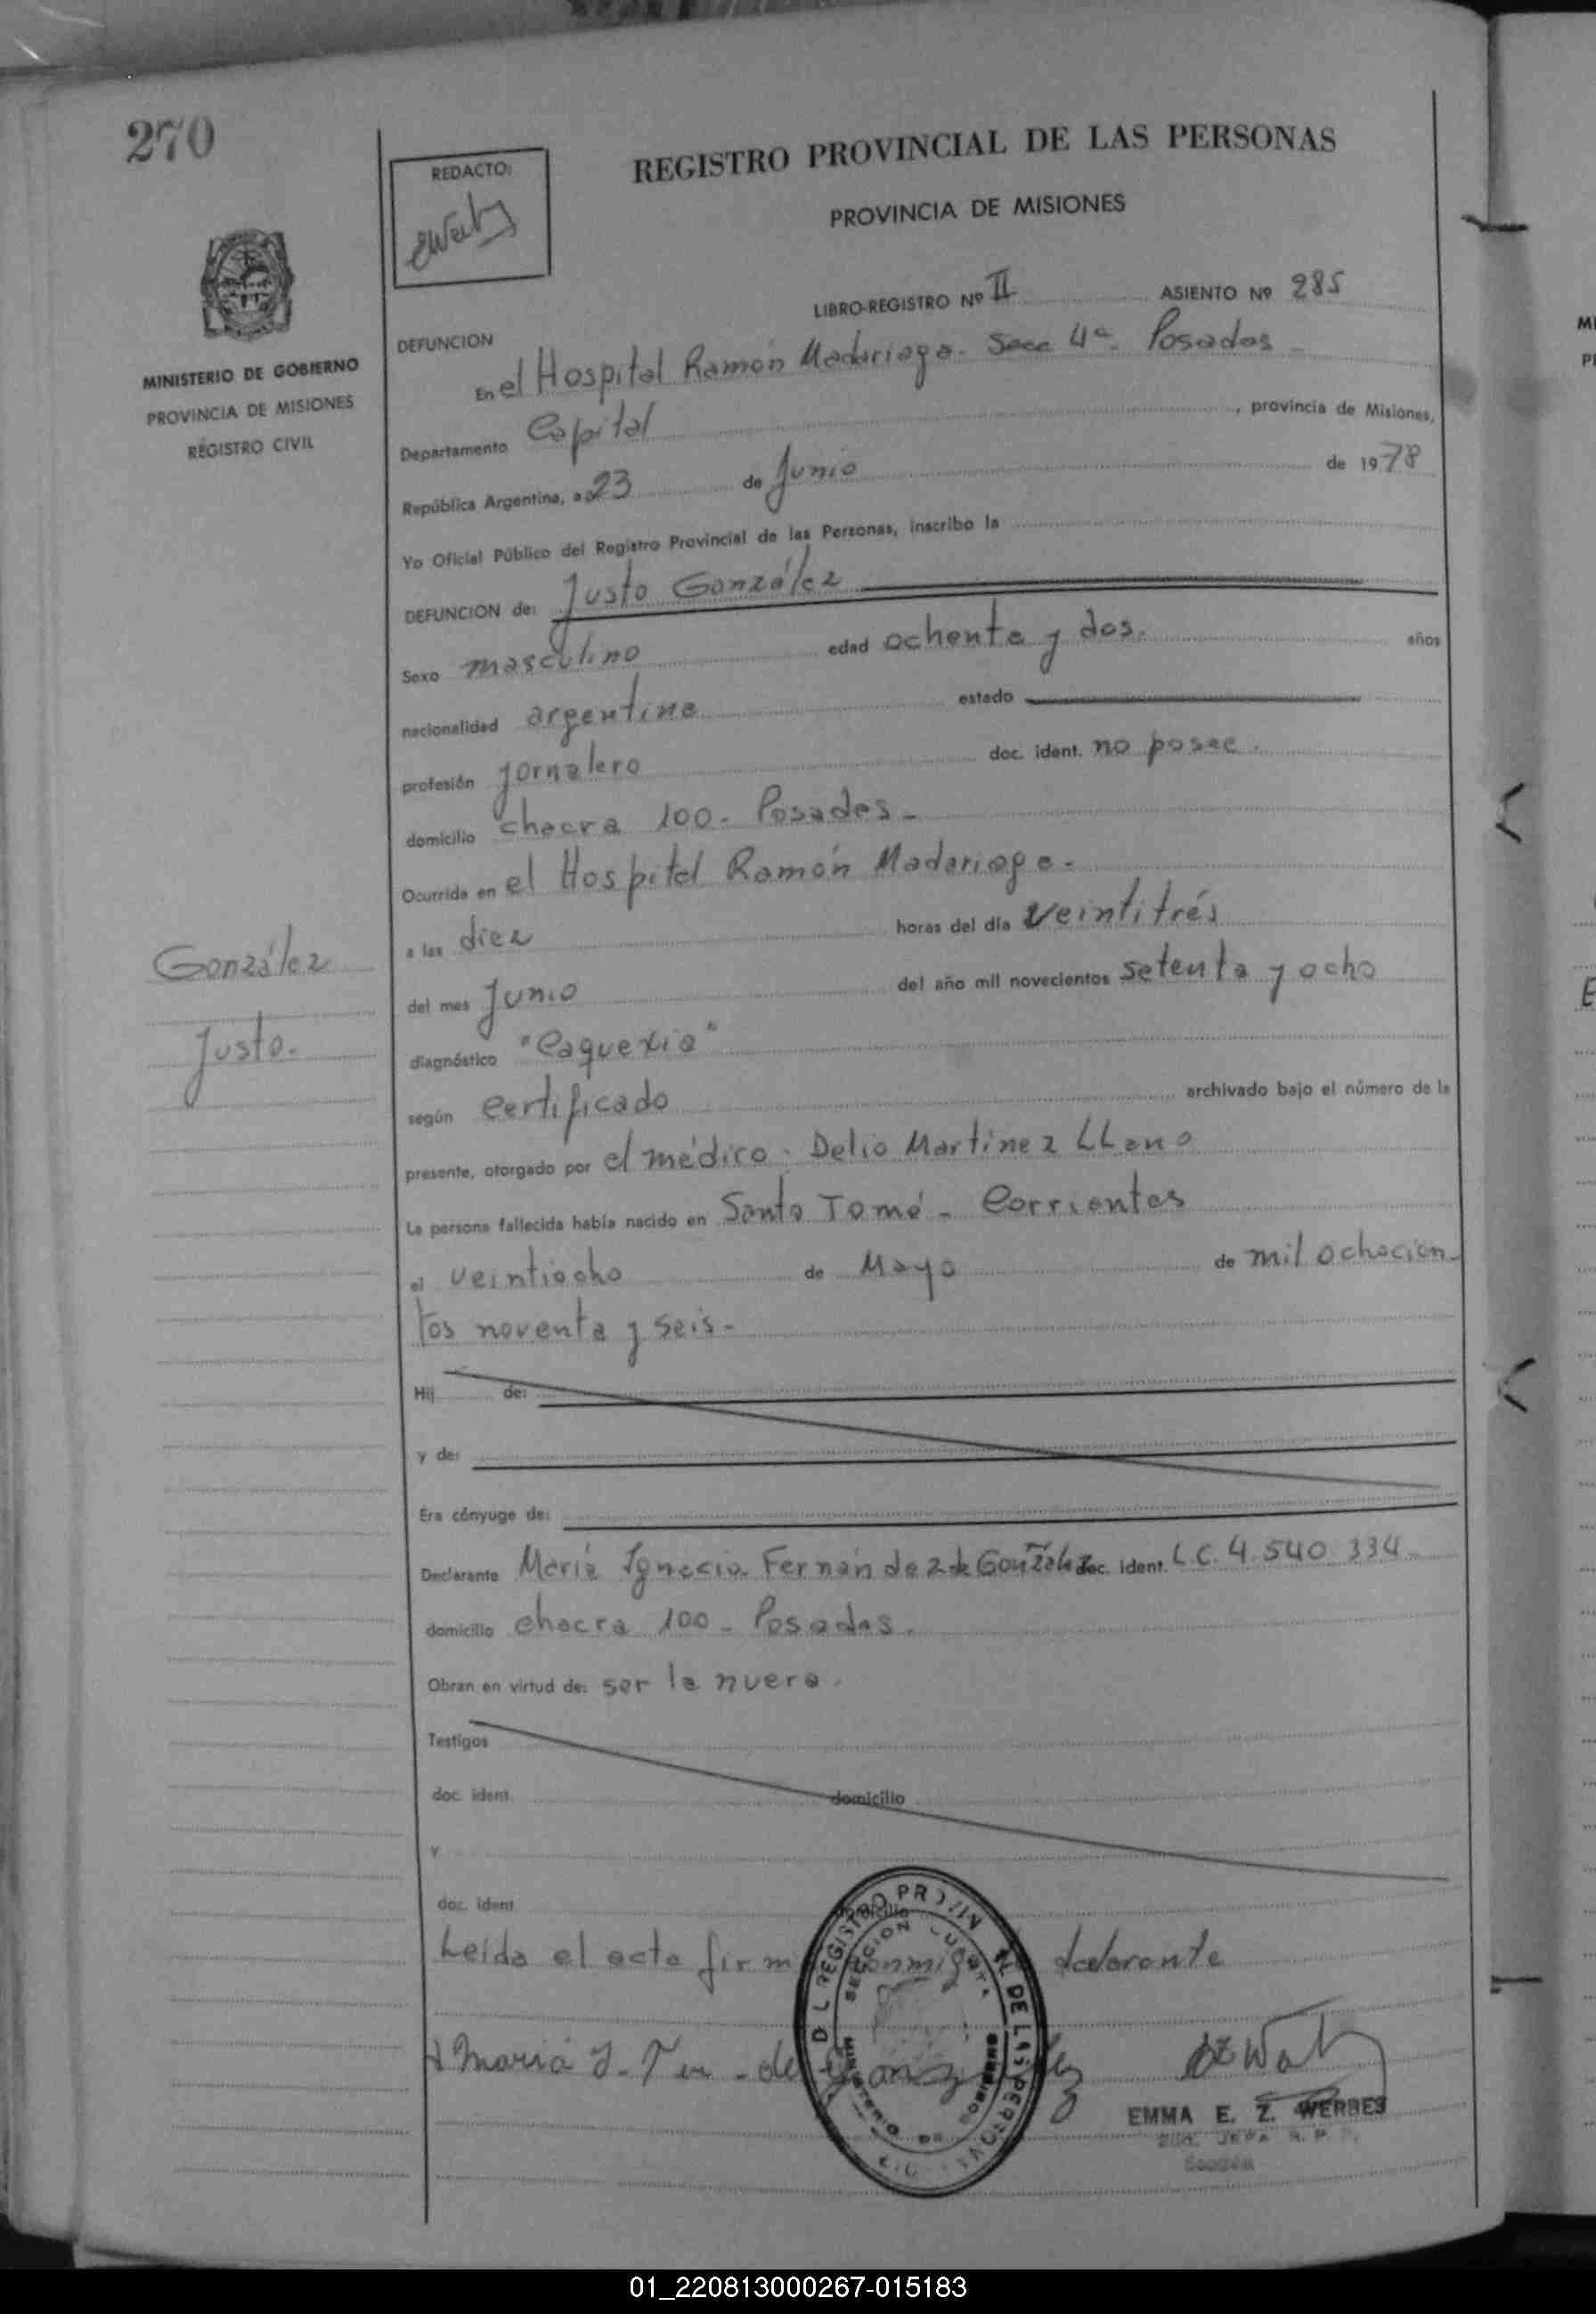 270
REDACTO:
REGISTRO PROVINCIAL DE LAS PERSONAS
PROVINCIA DE MISIONES
LIBRO-REGISTRO Nº II ASIENTO Nº 285
MINISTERIO DE GOBIERNO
PROVINCIA DE MISIONES
REGISTRO CIVIL
DEFUNCION
En el Hospital Ramón Madariaga. Secc 4ª. Posadas -
Departamento Capital, provincia de Misiones,
República Argentina, a 23 de Junio de 1978
Yo Oficial Público del Registro Provincial de las Personas, inscribo la
DEFUNCION de: Justo González
Sexo masculino edad ochenta y dos. años
nacionalidad argentina estado
profesión jornalero doc. ident. no posee.
domicilio chacra 100. Posadas -
Ocurrida en el Hospital Ramón Madariaga -
a las diez horas del día veintitrés
del mes Junio del año mil novecientos setenta y ocho
González
Justo.
diagnóstico "Caquexia"
según Certificado archivado bajo el número de la
presente, otorgado por el médico. Delio Martinez LLano
La persona fallecida había nacido en Santo Tomé - Corrientes
el veintiocho de Mayo de mil ochocien-
tos noventa y seis -
Hij de:
y de:
Era cónyuge de:
Declarante María Ignacia Fernández de González doc. ident. L.C. 4.540.334 -
domicilio chacra 100 - Posadas.
Obran en virtud de: ser la nuera.
Testigos
doc. ident. domicilio
Y
doc. ident domicilio
Leída el acta firm conmigo declarante
María I. de González
EMMA E. Z. WERBES
JEFA R. P.
01_220813000267-015183